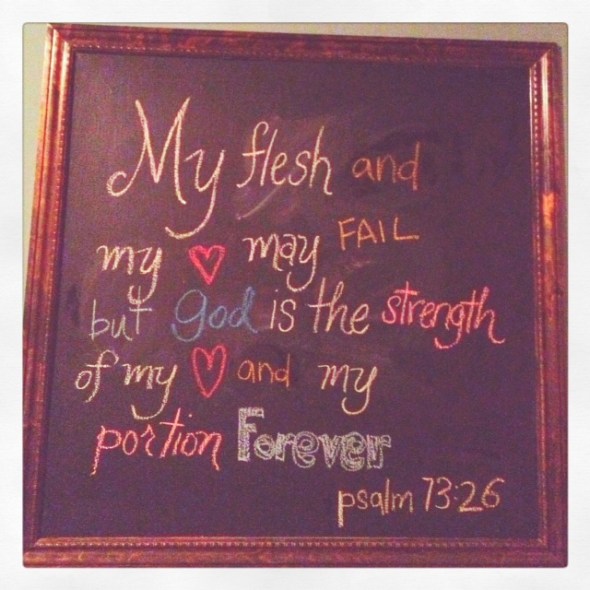 My flesh and
my ♡ may FAIL
but god is the strength
of my ♡ and my
portion Forever
psalm 73:26